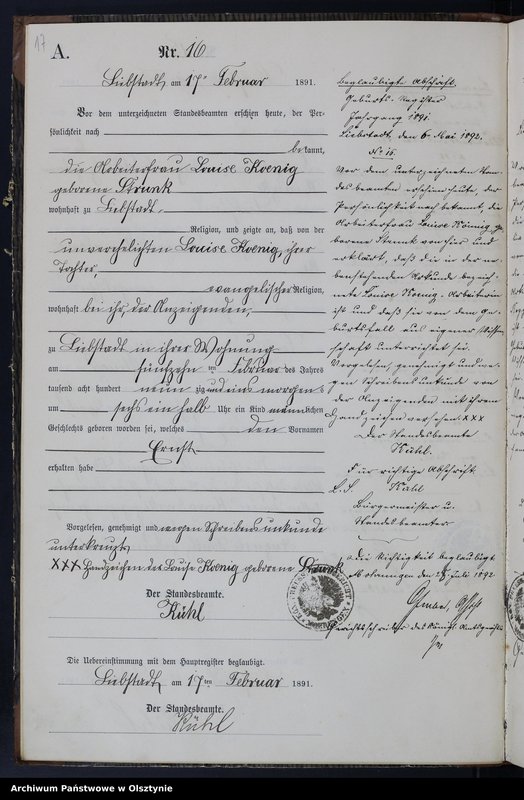 17
A.
Nr. 16
Liebstadt, am 17ten Februar 1891.
Vor dem unterzeichneten Standesbeamten erschien heute, der Per-
sönlichkeit nach
bekannt,
die Arbeiterfrau Louise Koenig
geborene Strunk
wohnhaft zu Liebstadt,
Religion, und zeigte an, daß von der
unverehelichten Louise Koenig, ihrer
Tochter,
evangelischer Religion,
wohnhaft bei ihr, der Anzeigenden,
zu Liebstadt in ihrer Wohnung
am fünfzehnten Februar des Jahres
tausend acht hundert neunzig und eins morgens
um sechs ein halb Uhr ein Kind männlichen
Geschlechts geboren worden sei, welches den Vornamen
Ernst
erhalten habe
Vorgelesen, genehmigt und wegen Schreibensunkunde
unterkreuzt
XXX Handzeichen der Louise Koenig geborene Strunk
Der Standesbeamte.
Kühl
Die Uebereinstimmung mit dem Hauptregister beglaubigt.
Liebstadt, am 17ten Februar 1891.
Der Standesbeamte.
Kühl
Beglaubigte Abschrift.
Geburts-Register
Jahrgang 1891.
Liebstadt, den 6. Mai 1892.
No 16.
Vor dem unterzeichneten Stan-
desbeamten erschien heute, der
Persönlichkeit nach bekannt, die
Arbeiterfrau Louise König, ge-
borene Strunk von hier und
erklärt, daß die in der ne-
benstehenden Urkunde bezeich-
nete Louise Koenig Arbeiterin
ist und daß sie von dem Ge-
burtsfall aus eigener Wissen-
schaft unterrichtet sei.
Vorgelesen, genehmigt und we-
gen Schreibensunkunde von
der Anzeigenden mit ihrem
Handzeichen versehen. xxx
Der Standesbeamte
Kühl.
Für richtige Abschrift
L. S. Kühl
Bürgermeister u.
Standesbeamter
Die Richtigkeit beglaubigt
Mohrungen den Juli 1892
Gerichtsschreiber des Königl. Amtsgerichts
Archiwum Państwowe w Olsztynie